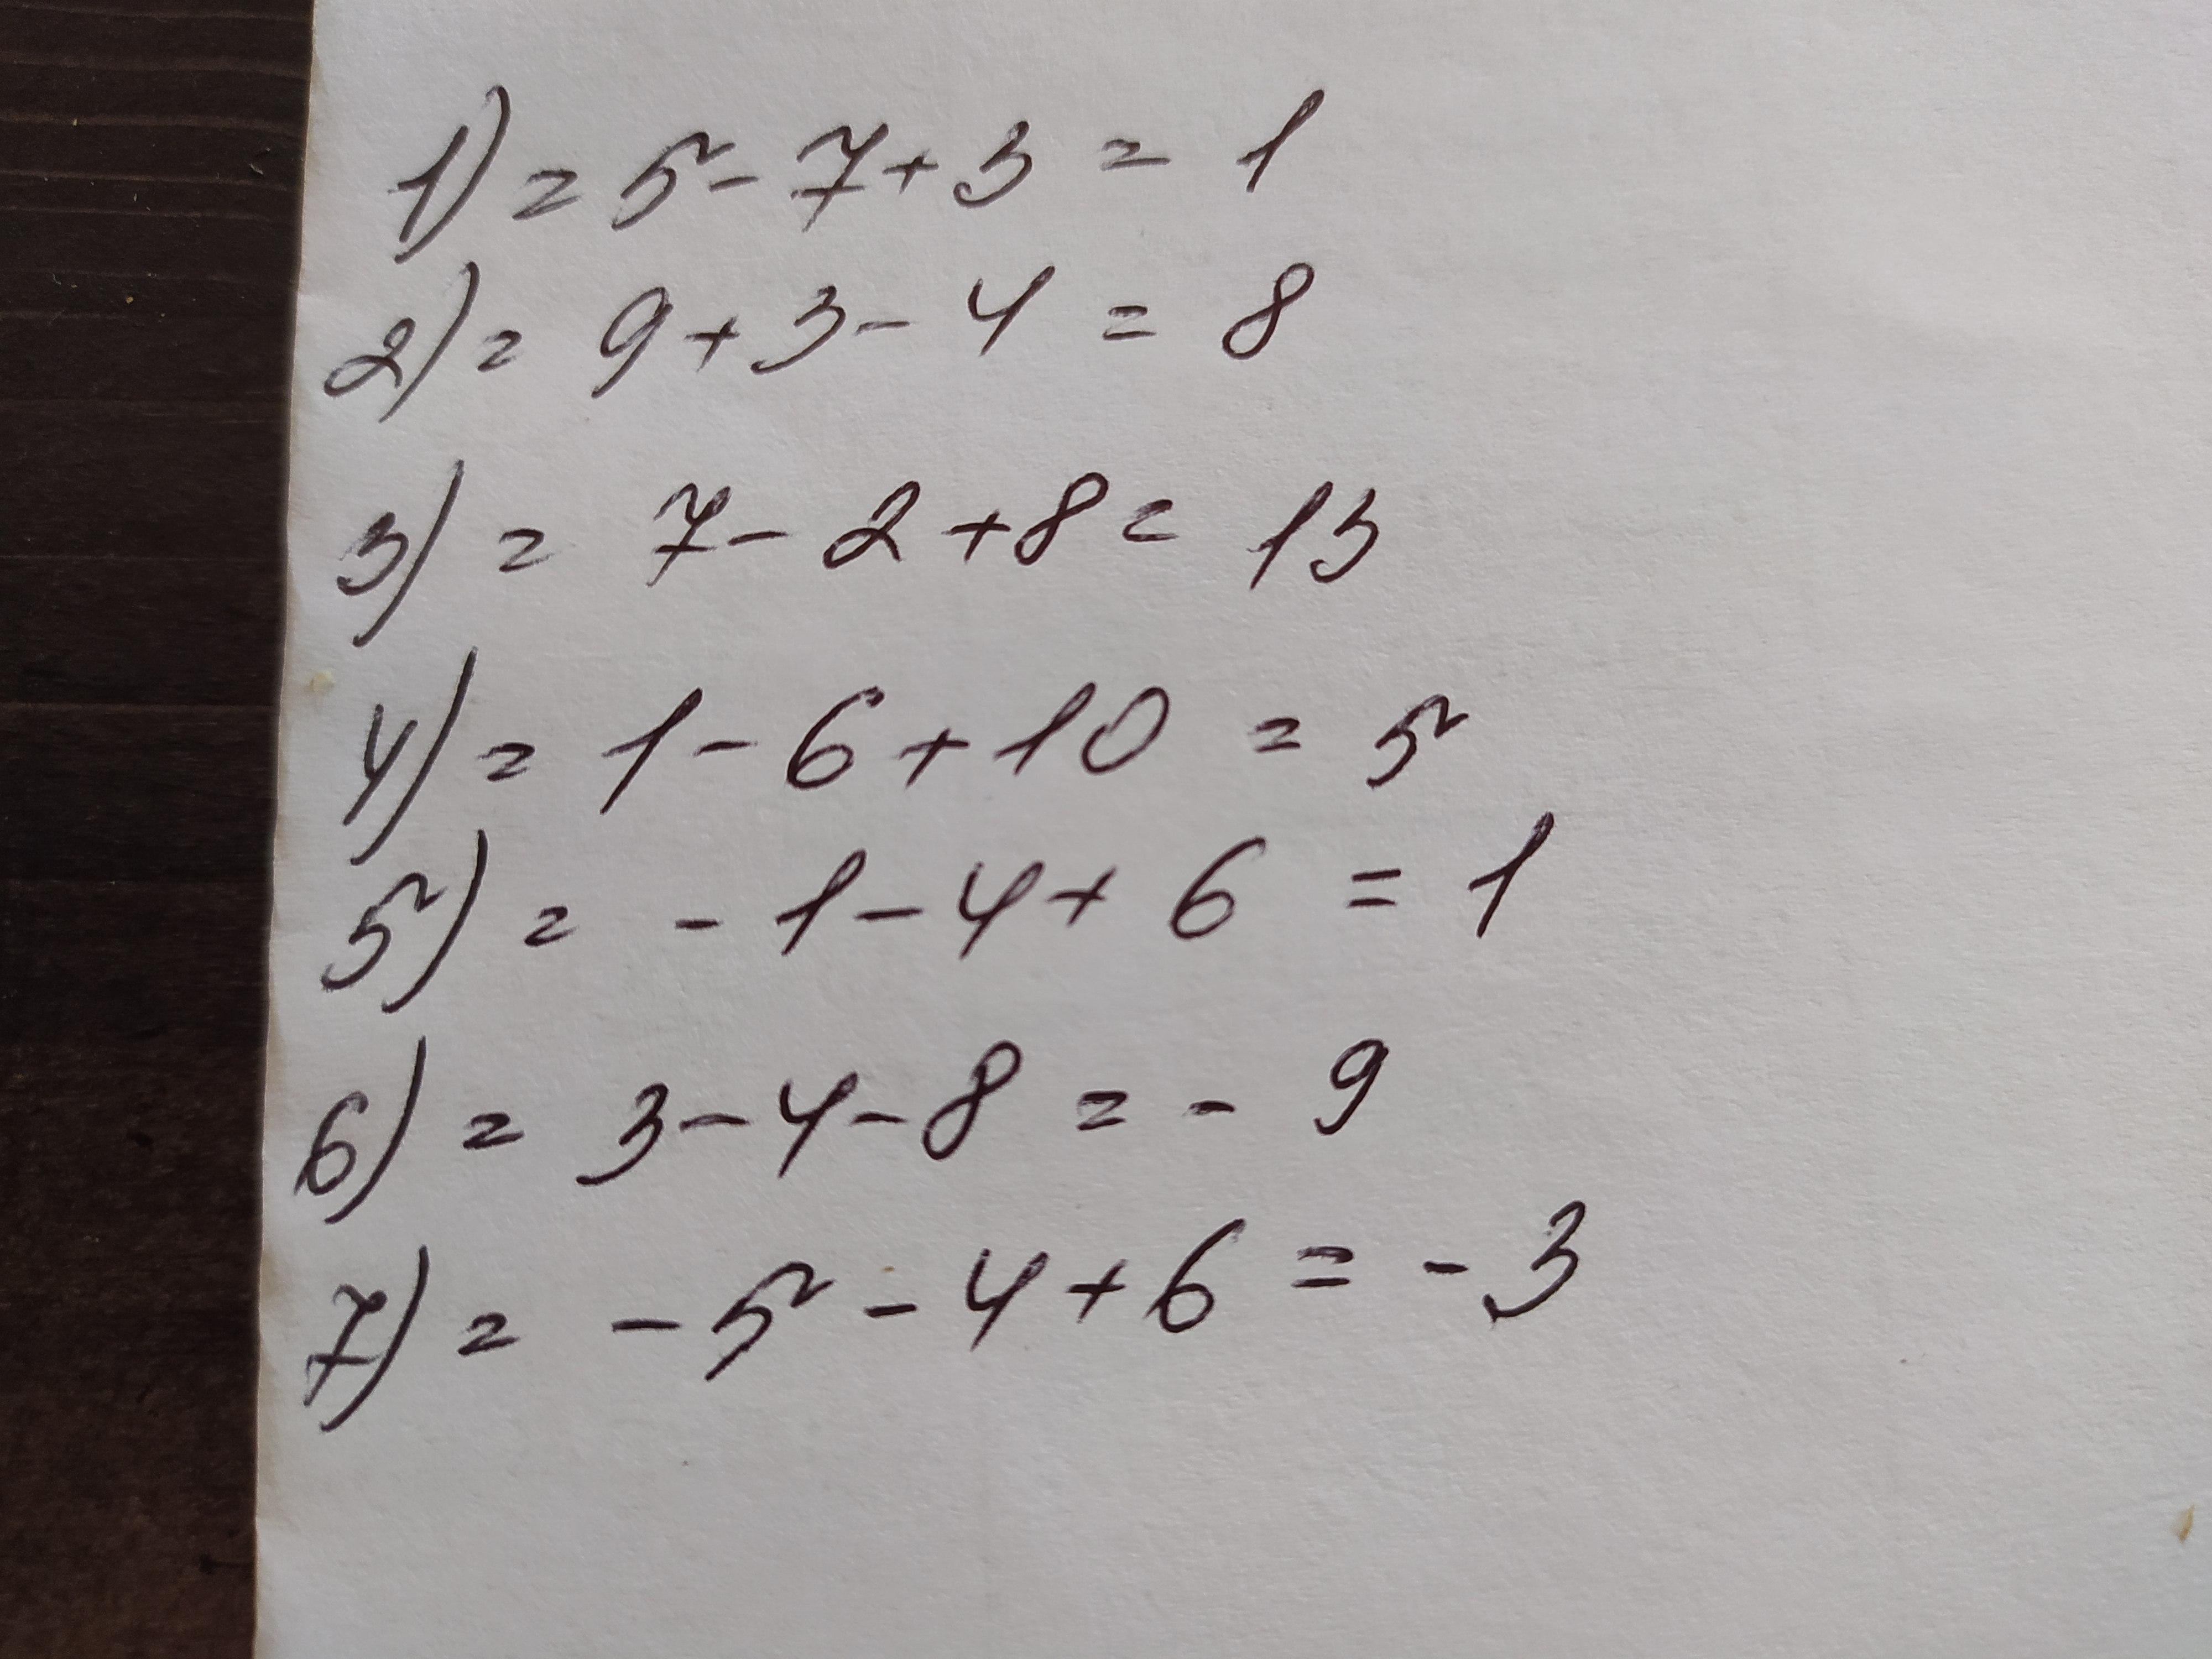 1) = 5 - 7 + 3 = 1
2) = 9 + 3 - 4 = 8
3) = 7 - 2 + 8 = 13
4) = 1 - 6 + 10 = 5
5) = - 1 - 4 + 6 = 1
6) = 3 - 4 - 8 = - 9
7) = - 5 - 4 + 6 = - 3